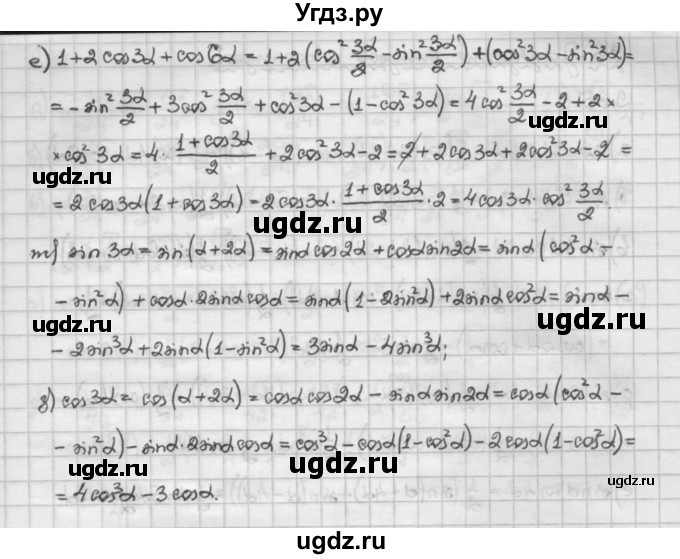 Угдз.ру
е) 1+2cos3α+cos6α = 1+2(cos² 3α/2 - sin² 3α/2) + (cos²3α - sin²3α) =
= - sin² 3α/2 + 3cos² 3α/2 + cos²3α - (1-cos²3α) = 4cos² 3α/2 - 2 + 2 ×
ugdz.ru
× cos²3α = 4 · (1+cos3α)/2 + 2cos²3α - 2 = 2 + 2cos3α + 2cos²3α - 2 =
ugdz.ru
= 2cos3α(1+cos3α) = 2cos3α · (1+cos3α)/2 · 2 = 4cos3α · cos² 3α/2.
ugdz.ru
ж) sin3α = sin(α+2α) = sinα cos2α + cosα sin2α = sinα(cos²α -
ugdz.ru
- sin²α) + cosα · 2sinα cosα = sinα(1-2sin²α) + 2sinα cos²α = sinα -
ugdz.ru
ugdz.ru
- 2sin³α + 2sinα(1-sin²α) = 3sinα - 4sin³α;
з) cos3α = cos(α+2α) = cosα cos2α - sinα sin2α = cosα(cos²α -
ugdz.ru
- sin²α) - sinα · 2sinα cosα = cos³α - cosα(1-cos²α) - 2cosα(1-cos²α) =
ugdz.ru
ugdz.ru
ugdz.ru
= 4cos³α - 3cosα.
ugdz.ru